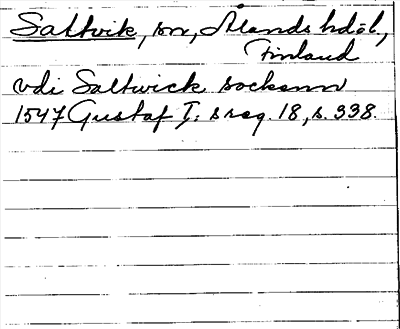 Saltvik, sn, Ålands hdöl,
Finland
vdi Saltwick sockenn
1547 Gustaf I: s reg. 18, s. 338.